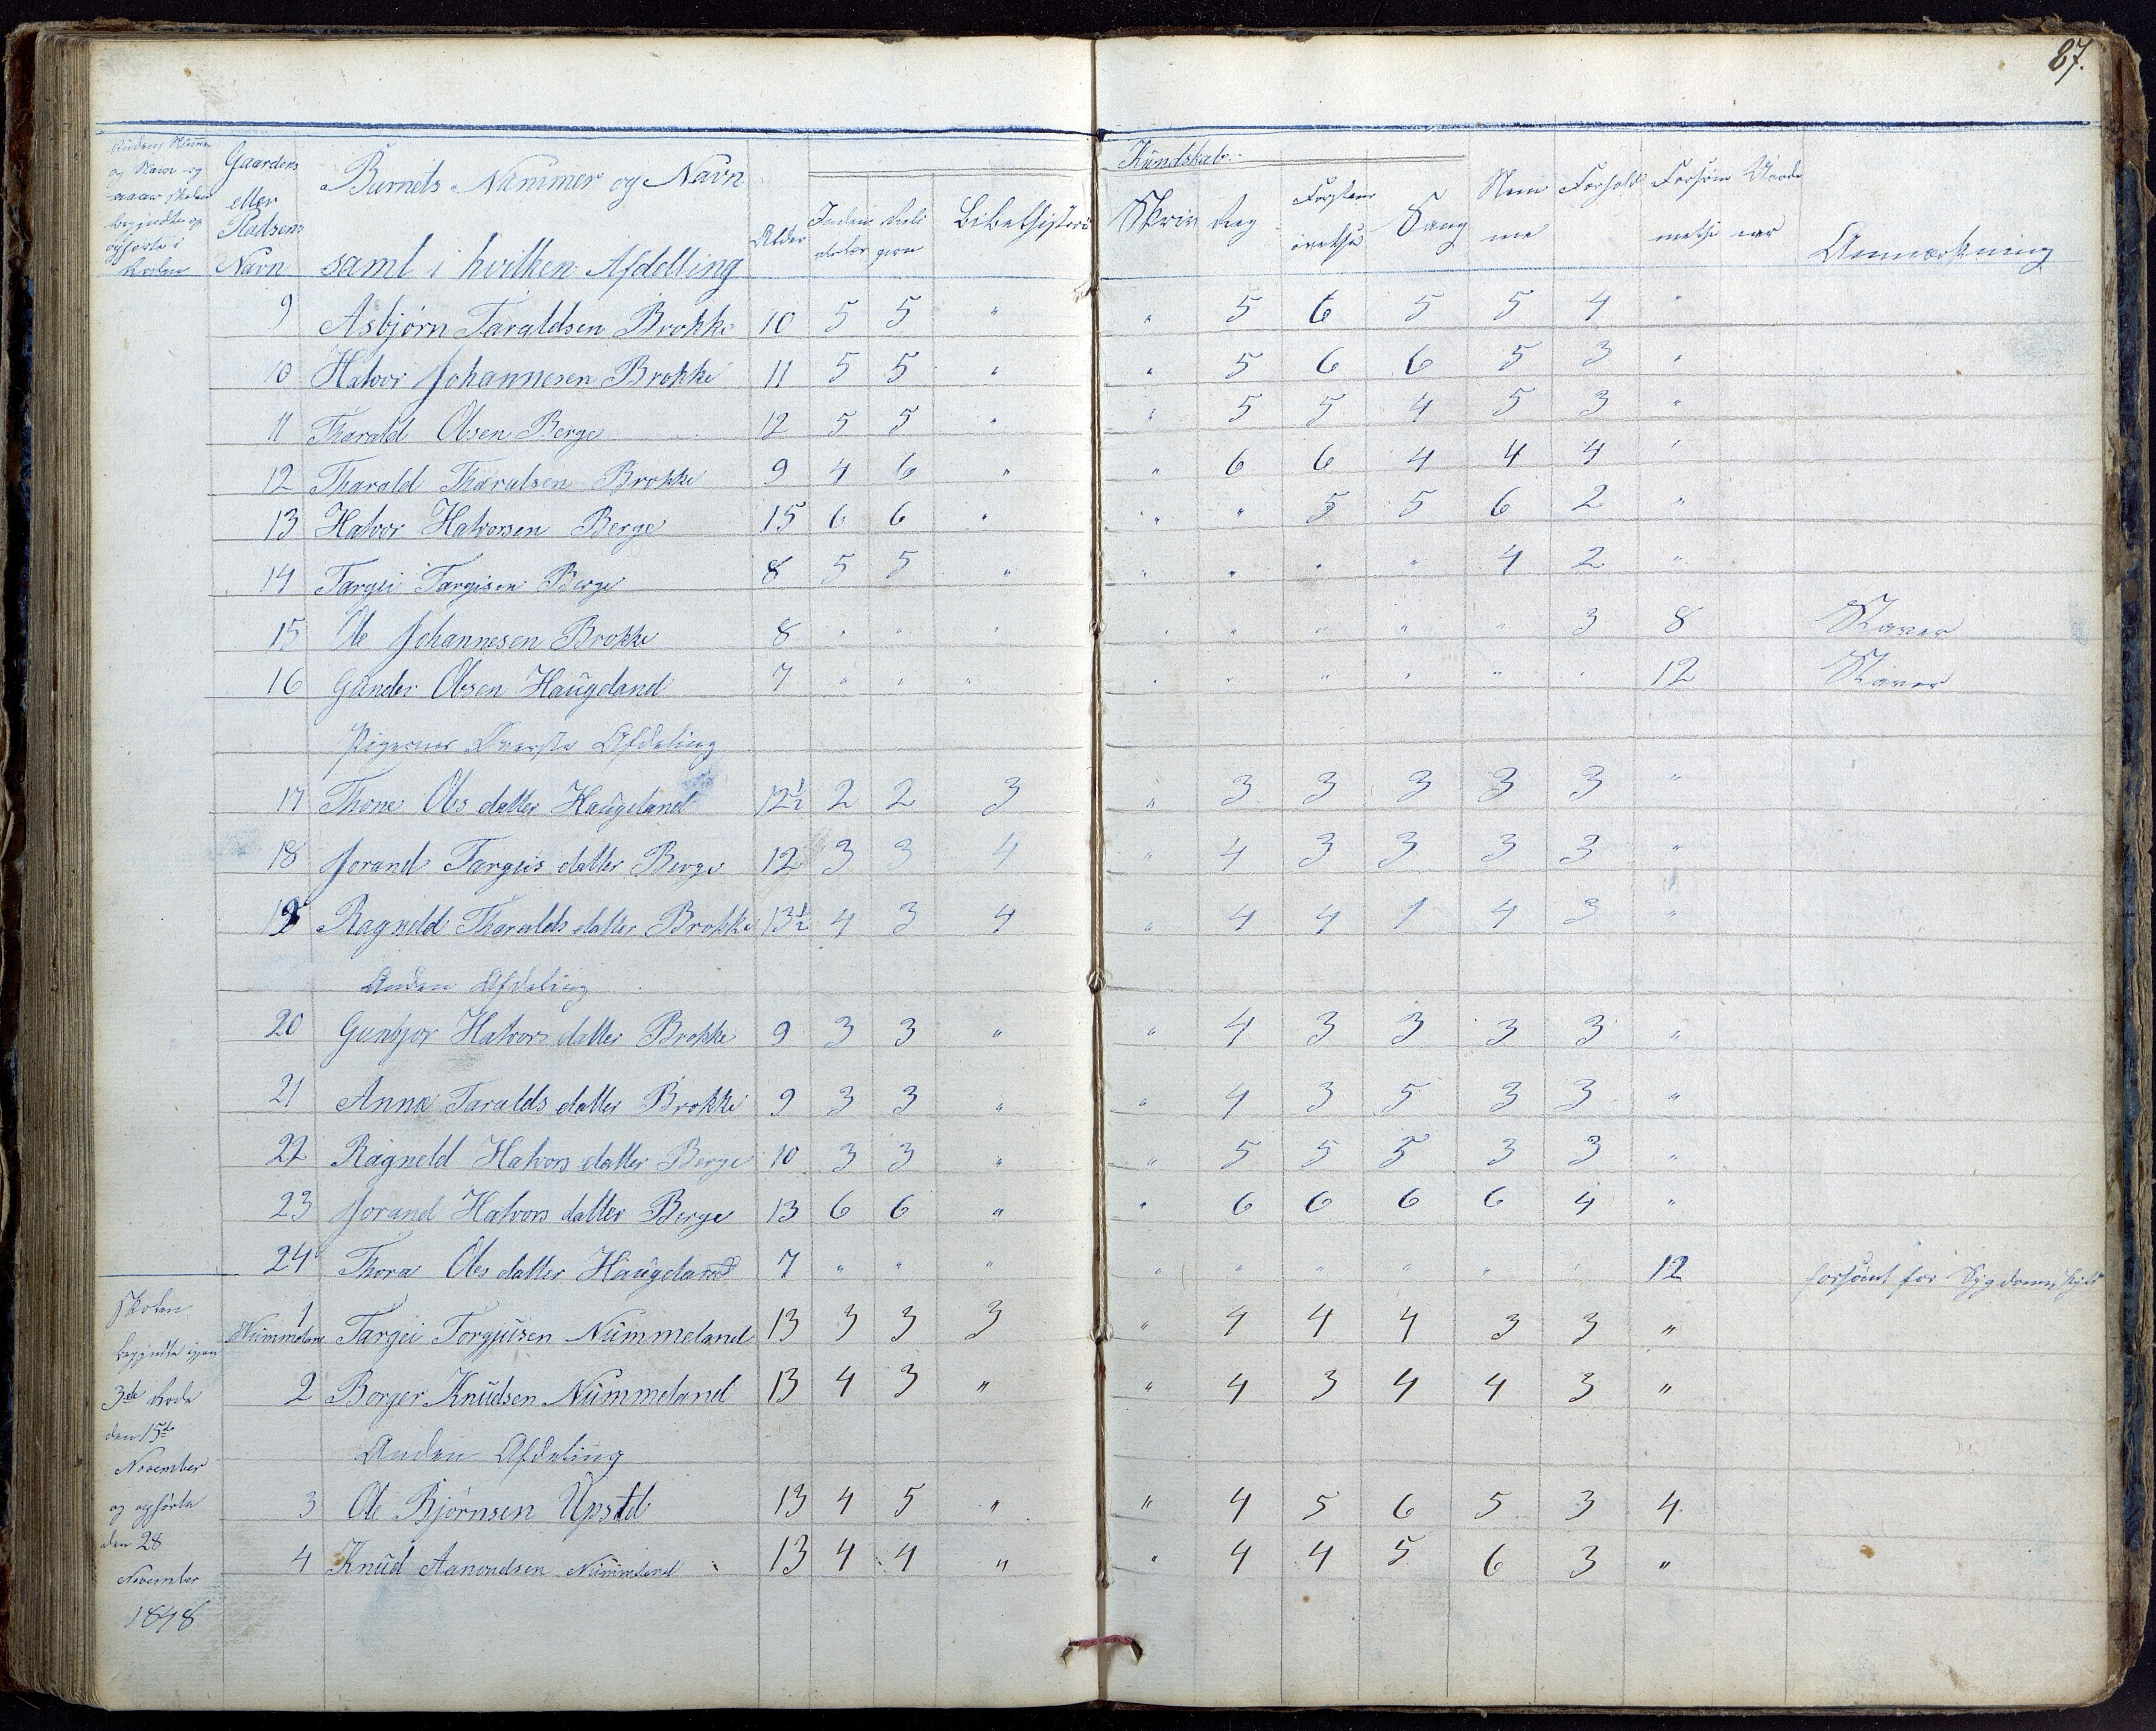 87.
Rodens Numer
og Navn og
naar Skolen
begyndte og
opførte i
Roden
Gaardens
eller
Pladsens
Navn
Barnets Nummer og Navn
samt i hvilken Afdelling
Alder
Inden Reli
gion
Bibelhistorie
Kundskab
Skriv Reg Forstan Sang Nem Forhold Forsøm
me melse
Anmærkning
9 Asbjørn Taraldsen Brokke 10 5 5 " " 5 6 5 5 4 "
10 Halvor Johannesen Brokke 11 5 5 " " 5 6 6 5 3 "
11 Tharald Olsen Berge 12 5 5 " " 5 5 4 5 3 "
12 Tharald Tharalsen Brokke 9 4 6 " " 6 6 4 4 4 "
13 Halvor Halvorsen Berge 15 6 6 " " " 5 5 6 2 "
14 Targei Targisen Berge 8 5 5 " " " " " 4 2 "
15 Ole Johannesen Brokke 8 " " " " " " " " 3 8 Staver
16 Gunder Olsen Haugeland 7 " " " " " " " " " 12 Staver
Pigernes Øverste Afdeling
17 Thone Ols datter Haugeland 12½ 2 2 3 " 3 3 3 3 3 "
18 Jorand Targeis datter Berge 12 3 3 4 " 4 3 3 3 3 "
19 Ragneld Tharalds datter Brokke 13½ 4 3 4 " 4 4 1 4 3 "
Anden Afdeling
20 Gunbjor Halvors datter Brokke 9 3 3 " " 4 3 3 3 3 "
21 Anna Taralds datter Brokke 9 3 3 " " 4 3 5 3 3 "
22 Ragneld Halvors datter Berge 10 3 3 " " 5 5 5 3 3 "
23 Jorand Halvors datter Berge 13 6 6 " " 6 6 6 6 4 "
24 Thora Ols datter Haugeland 7 " " " " " " " " " 12 forsømt for Sygdoms skyld
Skolen
begyndte igjen
3de Rode
den 15de
November
og opførte
den 28
November
1848
Nummeland 1 Targei Torgjusen Nummeland 13 3 3 3 " 4 4 4 3 3 "
2 Borger Knudsen Nummeland 13 4 3 " " 4 3 4 4 3 "
Anden Afdeling
3 Ole Bjørnsen Upstd 13 4 5 " " 4 5 6 5 3 4
4 Knud Aanondsen Nummeland 13 4 4 " " 4 4 5 6 3 "